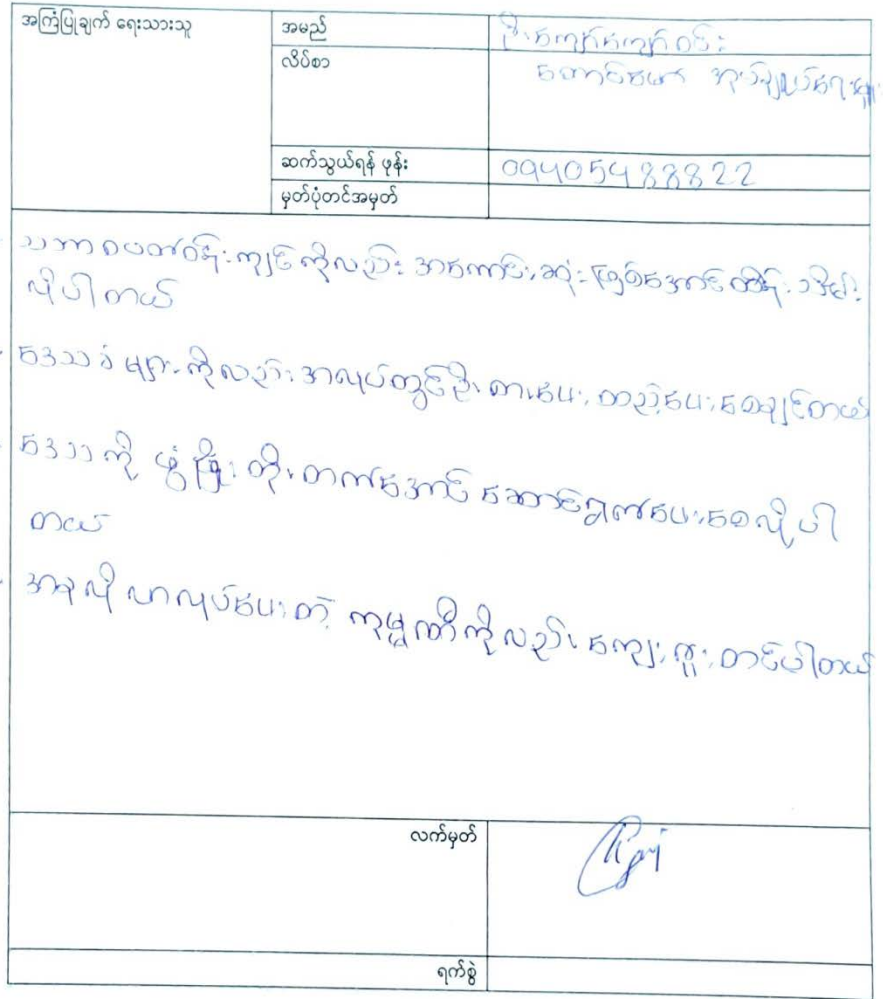 အကြံပြုချက် ရေးသားသူ
အမည်
ဦးကျော်ကျော်ဝင်း
လိပ်စာ
အုပ်ချုပ်ရေးမှူး
ဆက်သွယ်ရန် ဖုန်း
09405488822
မှတ်ပုံတင်အမှတ်
သဘာဝပတ်ဝန်းကျင်ကိုလည်း အကောင်းဆုံးဖြစ်အောင်ထိန်းသိမ်း
လိုပါတယ်
ဒေသခံများကိုလည်း အလုပ်တွင်ဦးစားပေး တည့်ပေးစေချင်တယ်
ဒေသကို ဖွံ့ဖြိုးတိုးတက်အောင် ဆောင်ရွက်ပေးစေလိုပါ
တယ်
အခုလိုလာလုပ်ပေးတဲ့ ကုမ္ပဏီကိုလည်း ကျေးဇူးတင်ပါတယ်
လက်မှတ်
ရက်စွဲ